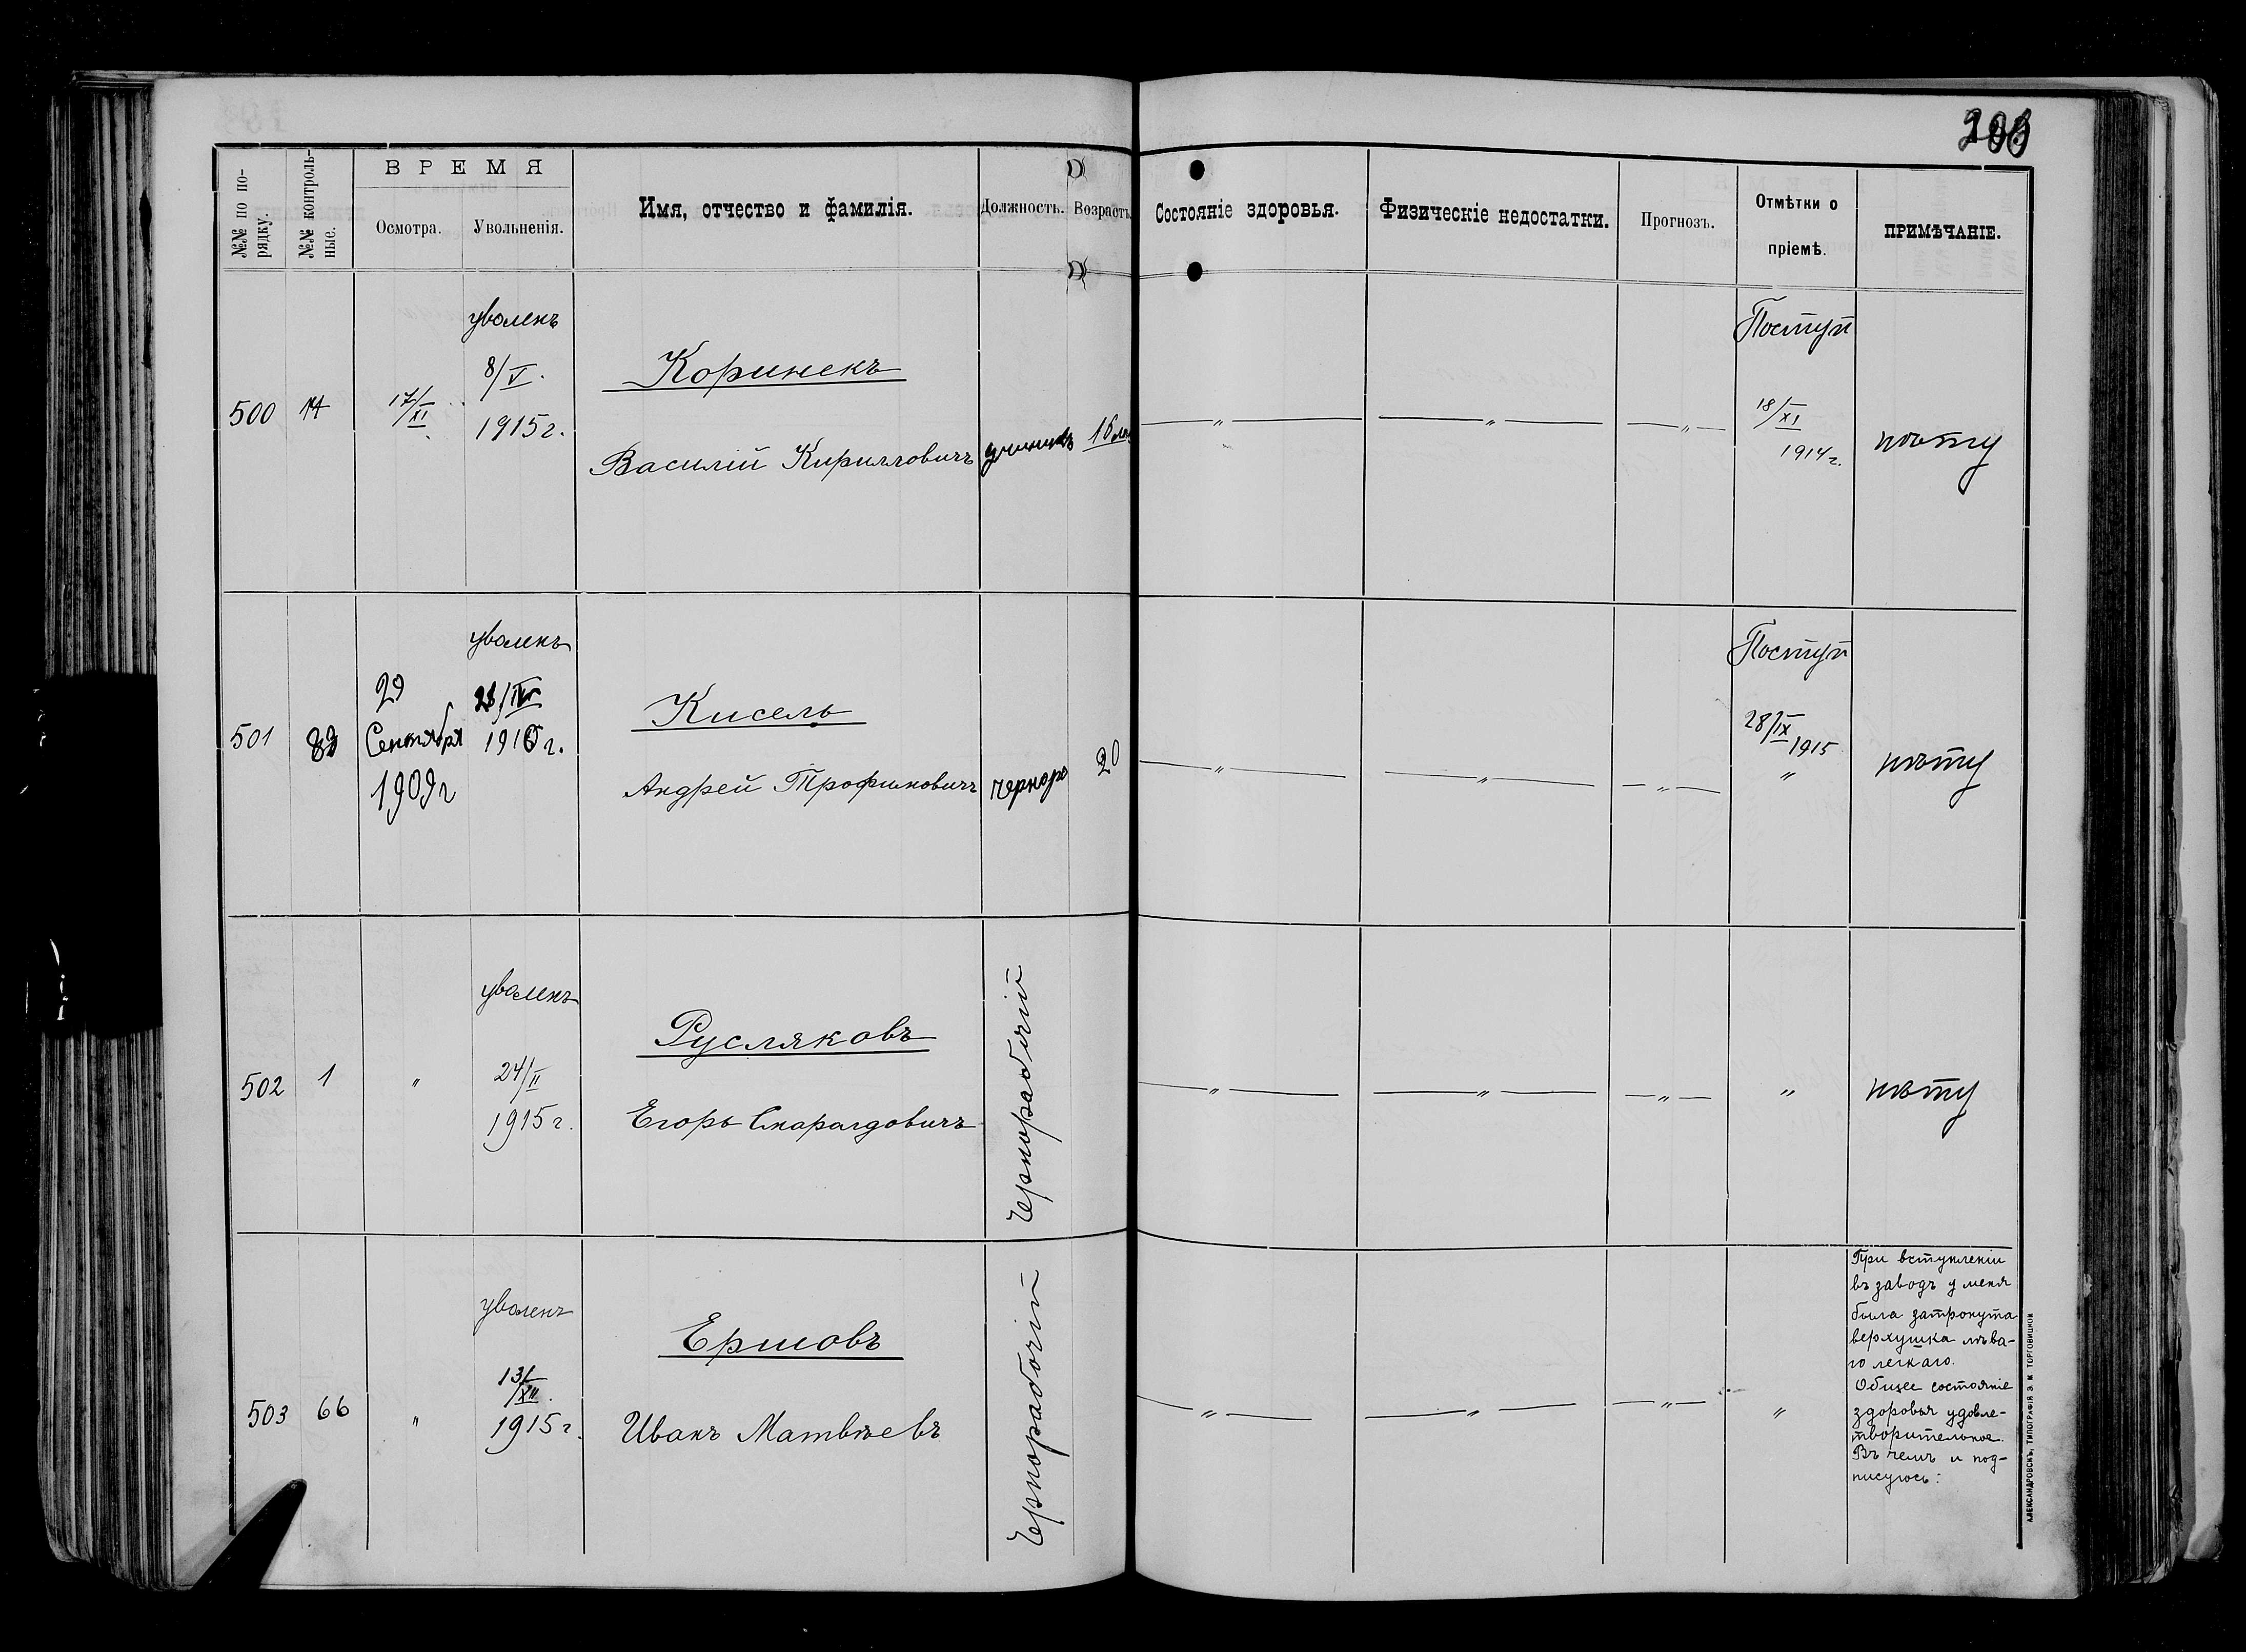 №№ по по-
рядку.
№№ контроль-
ные.
ВРЕМЯ
Осмотра.
Увольненія.
Имя, отчество и фамилія.
Должность.
Возрастъ.
Состояніе здоровья.
Физическіе недостатки.
Прогнозъ.
Отмѣтки о
пріемѣ.
ПРИМѢЧАНІЕ.
500
17/XI
уволенъ
8/V.
1915 г.
Коринекъ
Василій Кирилловичъ
ученикъ
16 лѣ
— „ —
— „ —
— „ —
Поступ
18/XI
1914 г.
нѣту
501
29
Сентября
1909 г
уволенъ
1916 г.
Кисель
Андрей Трофимовичъ
чернора
20
— „ —
— „ —
— „ —
Поступ
28/IX
1915
„
нѣту
502
1
„
уволенъ
24/II
1915 г.
Русляковъ
Егоръ Смарагдовичъ
Чернорабочій
— „ —
— „ —
— „ —
„
нѣту
503
66
„
уволенъ
13/XII.
1915 г.
Ершовъ
Иванъ Матвѣевъ
Чернорабочій
— „ —
— „ —
— „ —
„
При вступленіи
въ заводъ у меня
была затронута
верхушка лѣва-
го легкаго.
Общее состояніе
здоровья удовле-
творительное.
Въ чемъ и под-
писуюсь:
АЛЕКСАНДРОВСКЪ, ТИПОГРАФІЯ Э. И. ТОРГОВИЦКОЙ